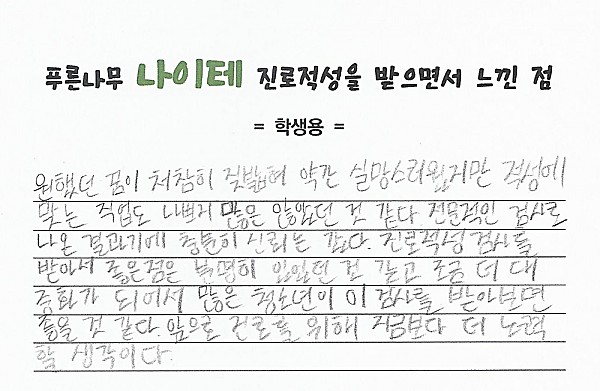 푸른나무 나이테 진로적성을 받으면서 느낀 점
= 학생용 =
원했던 꿈이 처참히 짓밟혀 약간 실망스러웠지만 적성에
맞는 직업도 나쁘지 많은 않았던 것 같다. 전문적인 검사로
나온 결과기에 충분히 신뢰는 갔다. 진로적성검사를
받아서 좋은점은 분명히 있었던 것 같고 조금 더 대
중화가 되어서 많은 청소년이 이 검사를 받아보면
좋을 것 같다. 앞으로 진로를 위해 지금보다 더 노력
할 생각이다.